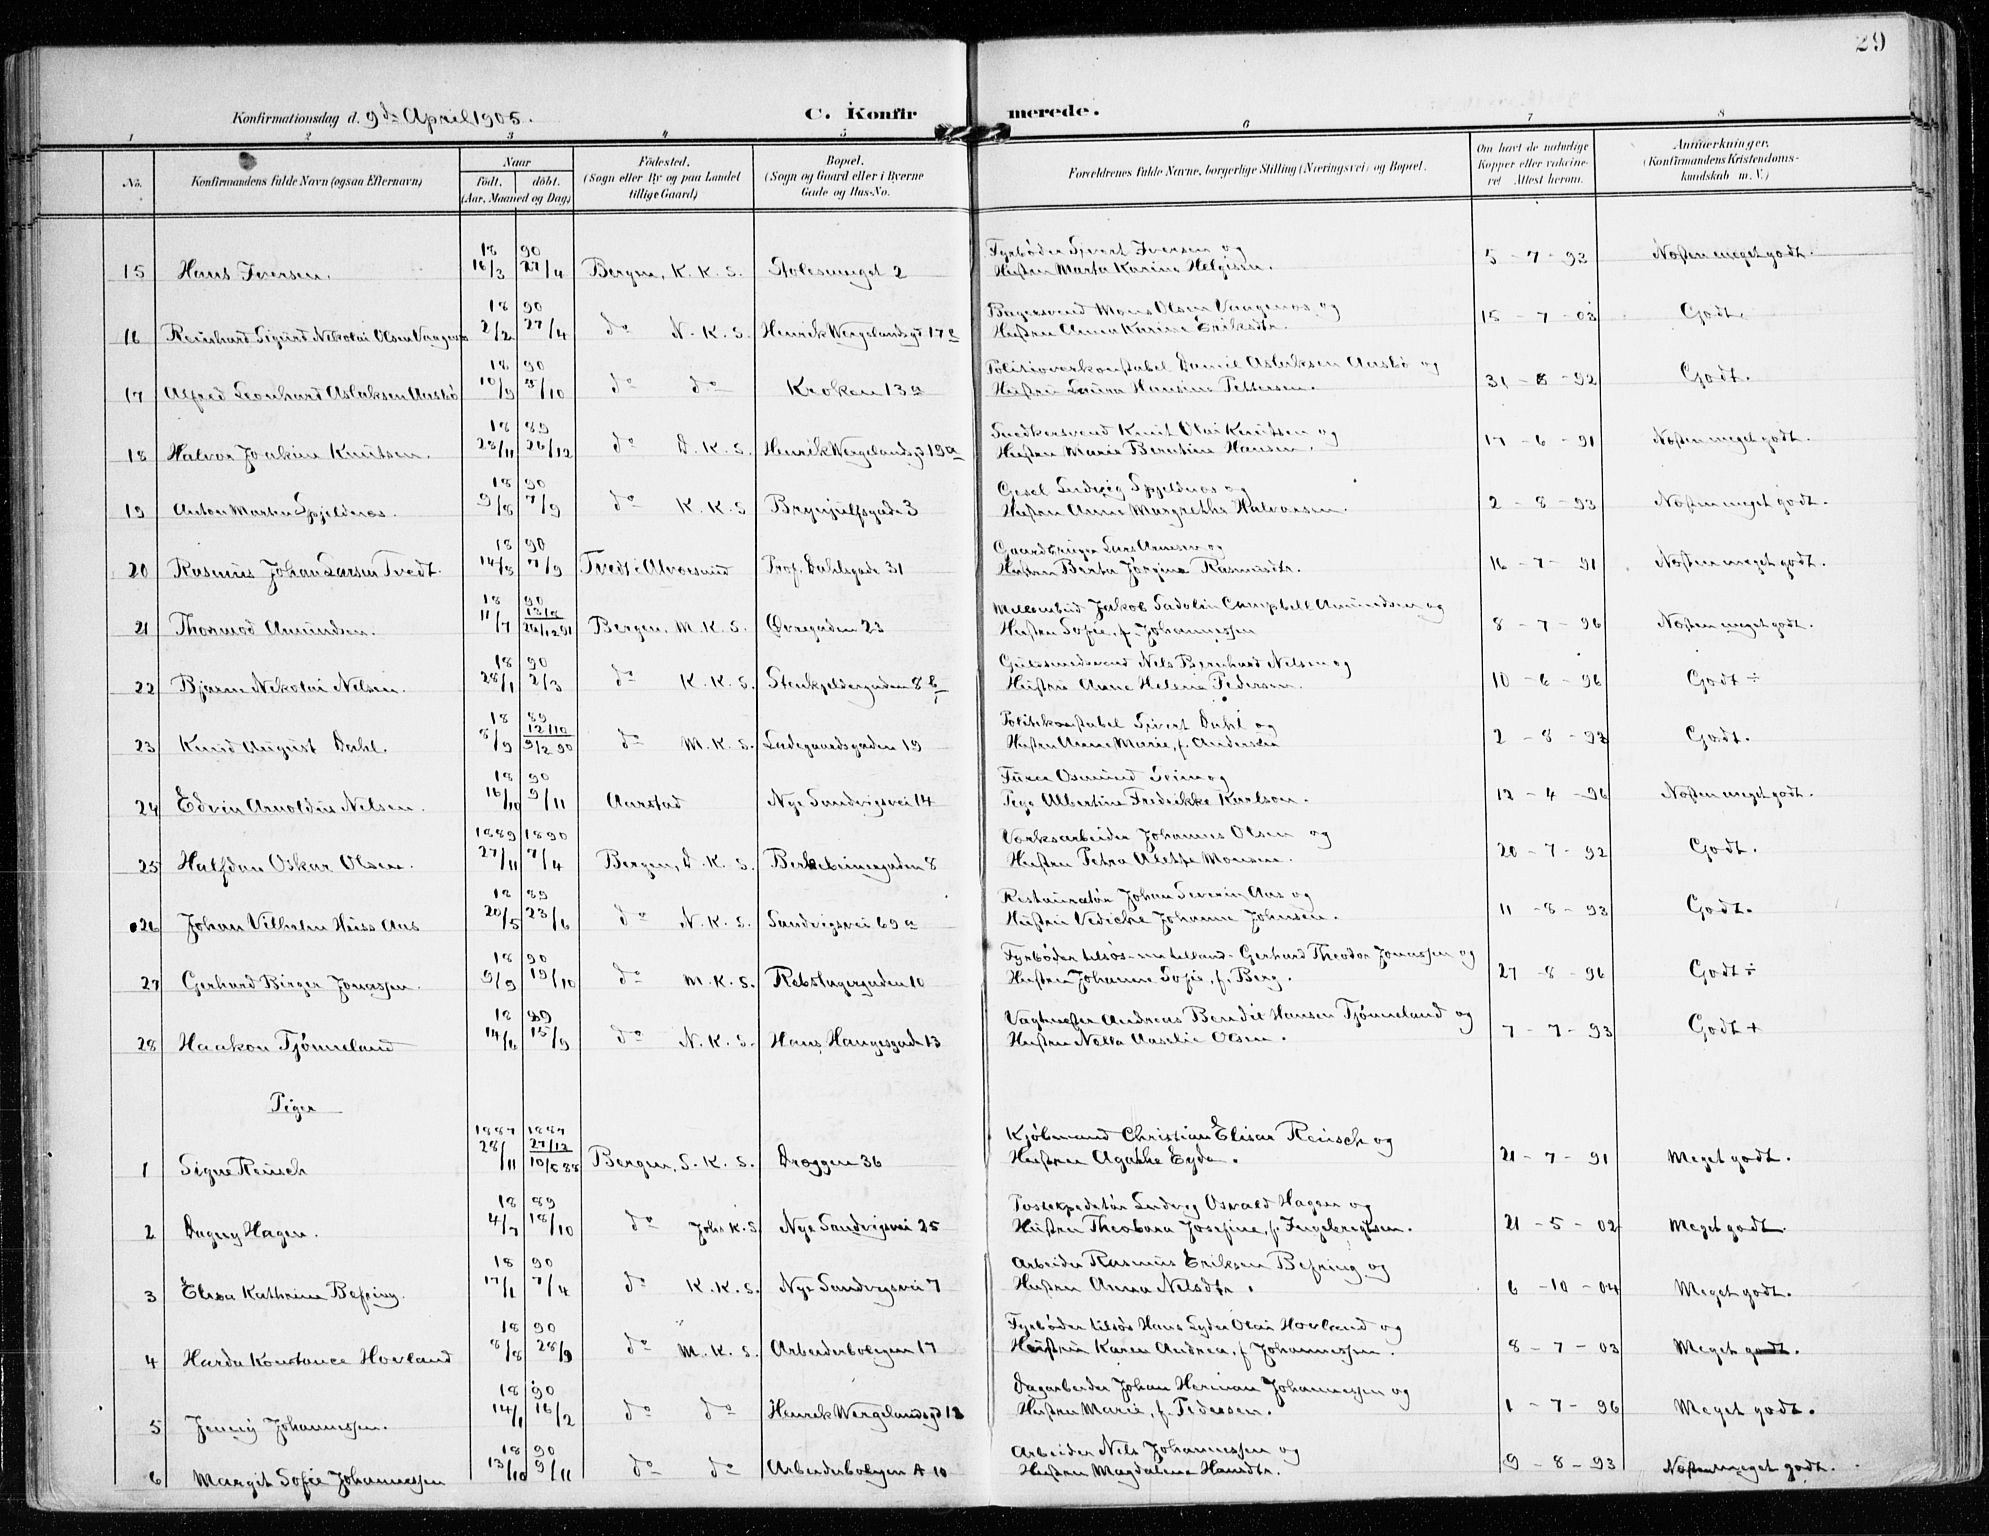 29
Konfirmationsdag d. 9de April 1905. C. Konfirmerede.
1 2 3 4 5 6 7 8
No. Konfirmandens fulde Navn (ogsaa Efternavn) Naar født. døbt. (Aar, Maaned og Dag) Fødested. (Sogn eller By og paa Landet tillige Gaard) Bopæl. (Sogn og Gaard eller i Byerne Gade og Hus-No. Forældrenes fulde Navne, borgerlige Stilling (Næringsvei) og Bopæl. Om havt de naturlige Kopper eller vakcineret Attest herom. Anmærkninger. (Konfirmandens Kristendomskundskab m. V.)
18 90 Fyrbøder Sjvert Iversen og
15 Hans Iversen. 16/3 27/4 Bergen, K. K. S. Stølesmuget 2 Hustru Marta Karine Helgesen. 5 - 7 - 93 Næsten meget godt.
18 90 Bagersvend Mons Olsen Vaagenæs og
16 Reinhard Sigurd Nikolai Olsen Vaagenæs 2/2 27/4 do N. K. S. Henrik Wergelandsgd 17 Hustru Anna Karine Eriksdtr. 15 - 7 - 03 Godt.
18 90 Politioverkonstabel Daniel Aslaksen Aasbø og
17 Alfred Leonhard Aslaksen Aasbø 10/9 5/10 do do Kroken 13a Hustru Laura Hansine Pettersen. 31 - 8 - 92 Godt.
18 89 Snedkersvend Knut Olai Knutsen og
18 Halvor Joakim Knutsen. 28/11 26/12 do D. K. S. Henrik Wergelandsgd 19a Hustru Marie Berntine Hansen. 17 - 6 - 91 Næsten meget godt.
18 90 Ludvig Spjeldnæs og
19 Anton Martin Spjeldnæs. 9/8 7/9 do K. K. S. Brynjulfsgade 3 Hustru Anne Margrethe Halvorsen. 2 - 8 - 93 Næsten meget godt.
18 90 Gaardbruger Lars Arnesen og
20 Rasmus Johan Larsen Tvedt. 14/8 7/9 Tvedt i Alvøesund Prof. Dahlsgade 31 Hustru Berta Jørgine Rasmusdtr. 16 - 7 - 91 Næsten meget godt.
18 90 Jakob Sadolin Campbell Amundsen og
21 Thormod Amundsen. 11/7 26/12 91 Bergen, M. K. S. Øvregaden 23 Hustru Sofie, f. Johannessen 8 - 7 - 96 Næsten meget godt.
18 90 Guldsmedsvend Nels Bernhard Nelsen og
22 Bjarne Nikolai Nelsen. 28/1 2/3 do K. K. S. Stenkjeldergaden 8 b Hustru Anne Helene Pedersen. 10 - 6 - 96 Godt ÷
18 89 12/10 Politikonstabel Sivert Dahl og
23 Knud August Dahl. 8/9 9/2 90 do M. K. S. Ladegaardsgaden 19 Hustru Anne Marie, f. Andersen 2 - 8 - 93 Godt.
18 90 Osmund Sviem og
24 Edvin Arnoldus Nelsen. 16/10 9/11 Aarstad Nye Sandvigsvei 14 Pige Albertine Fredrikke Karlson. 12 - 4 - 96 Næsten meget godt.
1889 1890 Værksarbeider Johannes Olsen og
25 Halfdan Oskar Olsen. 27/11 7/4 Bergen, D. K. S. Berkebeinergaden 8 Hustru Petra Alette Monsen. 20 - 7 - 92 Godt.
18 89 Restauratør Johan Severin Aas og
26 Johan Vilhelm Heiss Aas 20/5 23/6 do N. K. S. Sandvigsvei 69a Hustru Vedicke Johanne Johnsen. 11 - 8 - 93 Godt.
18 90 Fyrbøder tilsøs Gerhard Theodor Jonassen og
27 Gerhard Birger Jonassen. 9/9 19/10 do M. K. S. Rebslagergaden 10 Hustru Johanne Sofie, f. Berg. 27 - 8 - 96 Godt ÷
18 89 Vagtmester Andreas Bendit Hansen Tjønneland og
28 Haakon Tjønneland 14/6 15/9 do N. K. S. Hans Haugesgade 13 Hustru Nella Aaselie Olsen. 7 - 7 - 93 Godt +
Piger
1887 1887 27/12 Kjøbmand Christian Elisar Reusch og
1 Signe Reusch 28/11 10/5 88 Bergen, S. K. S. Dræggen 36 Hustru Agathe Eyde. 21 - 7 - 91 Meget godt.
18 89 Postexpeditør Ludvig Osvald Hagen og
2 Dagny Hagen. 4/7 18/10 do Johs K. S. Nye Sandvigsvei 25 Hustru Theobara Josefine, f. Ingebregtsen. 21 - 5 - 02 Meget godt.
18 90 Arbeider Rasmus Eriksen Befring og
3 Elisa Kathrine Befring. 17/1 7/4 do K. K. S. Nye Sandvigsvei 7 Hustru Anna Nelsdtr. 6 - 10 - 04 Meget godt.
18 90 Fyrbøder tilsøs Hans Lyder Olai Hovland og
4 Harda Konstance Hovland 8/8 28/9 do M. K. S. Arbeiderboligen 17 Hustru Karen Andrea, f Johannessen. 8 - 7 - 03 Meget godt.
18 90 Dagarbeider Johan Herman Johannessen og
5 Jenny Johannessen. 14/1 16/2 do do Henrik Wergelandsgd 12 Hustru Marie, f. Pedersen. 1 - 7 - 96 Meget godt.
18 90 Arbeider Nels Johannessen og
6 Margit Sofie Johannessen 13/10 9/11 do do Arbeiderboligen A 10 Hustru Magdalene Hansdtr. 9 - 8 - 93 Næsten meget godt.